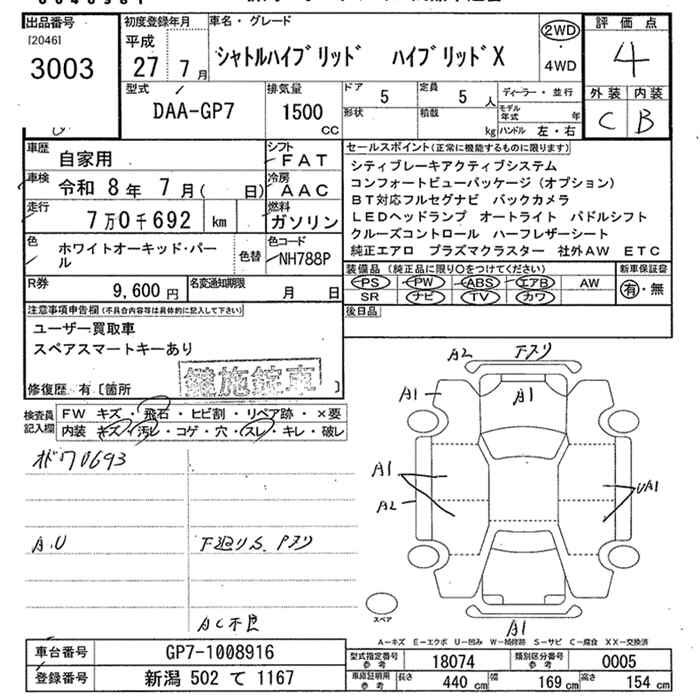 出品番号
[2046]
3003
初度登録年月
平成
27 7 月
車名・グレード
シャトルハイブリッド ハイブリッドX
2WD
4WD
評価点
4
外装 内装
C B
型式
DAA-GP7
排気量
1500
CC
ドア 5
定員 5 人
形状
積載 kg
ディーラー・並行
モデル年式 年
ハンドル 左・右
車歴 自家用
シフト FAT
車検 令和 8年 7月( 日)
冷房 AAC
走行 7万0千692 km
燃料 ガソリン
色 ホワイトオーキッド・パール
色替
色コード NH788P
R券 9,600 円
名変通知期限 月 日
セールスポイント(正常に機能するものに限ります)
シティブレーキアクティブシステム
コンフォートビューパッケージ(オプション)
BT対応フルセグナビ バックカメラ
LEDヘッドランプ オートライト パドルシフト
クルーズコントロール ハーフレザーシート
純正エアロ プラズマクラスター 社外AW ETC
装備品(純正品に限り○をつけてください)
新車保証書
PS PW ABS エアB AW
SR ナビ TV カワ
有・無
後日品
注意事項申告欄(不具合内容等は具体的に記入して下さい)
ユーザー買取車
スペアスマートキーあり
修復歴 有[箇所 ]
鍵施錠車
検査員記入欄
FW キズ・飛石・ヒビ割・リペア跡・×要
内装 キズ・汚レ・コゲ・穴・スレ・キレ・破レ
70693
A.U
下廻りS
AC不良
A2 下スリ
A1
A1
A1
A2
UA1
A1
スペア
A−キズ E−エクボ U−凹み W−補修跡 S−サビ C−腐食 XX−交換済
車台番号 GP7-1008916
登録番号 新潟 502 て 1167
型式指定番号 参考 18074
類別区分番号 参考 0005
車庫証明用 参考 長さ 440 cm 幅 169 cm 高さ 154 cm